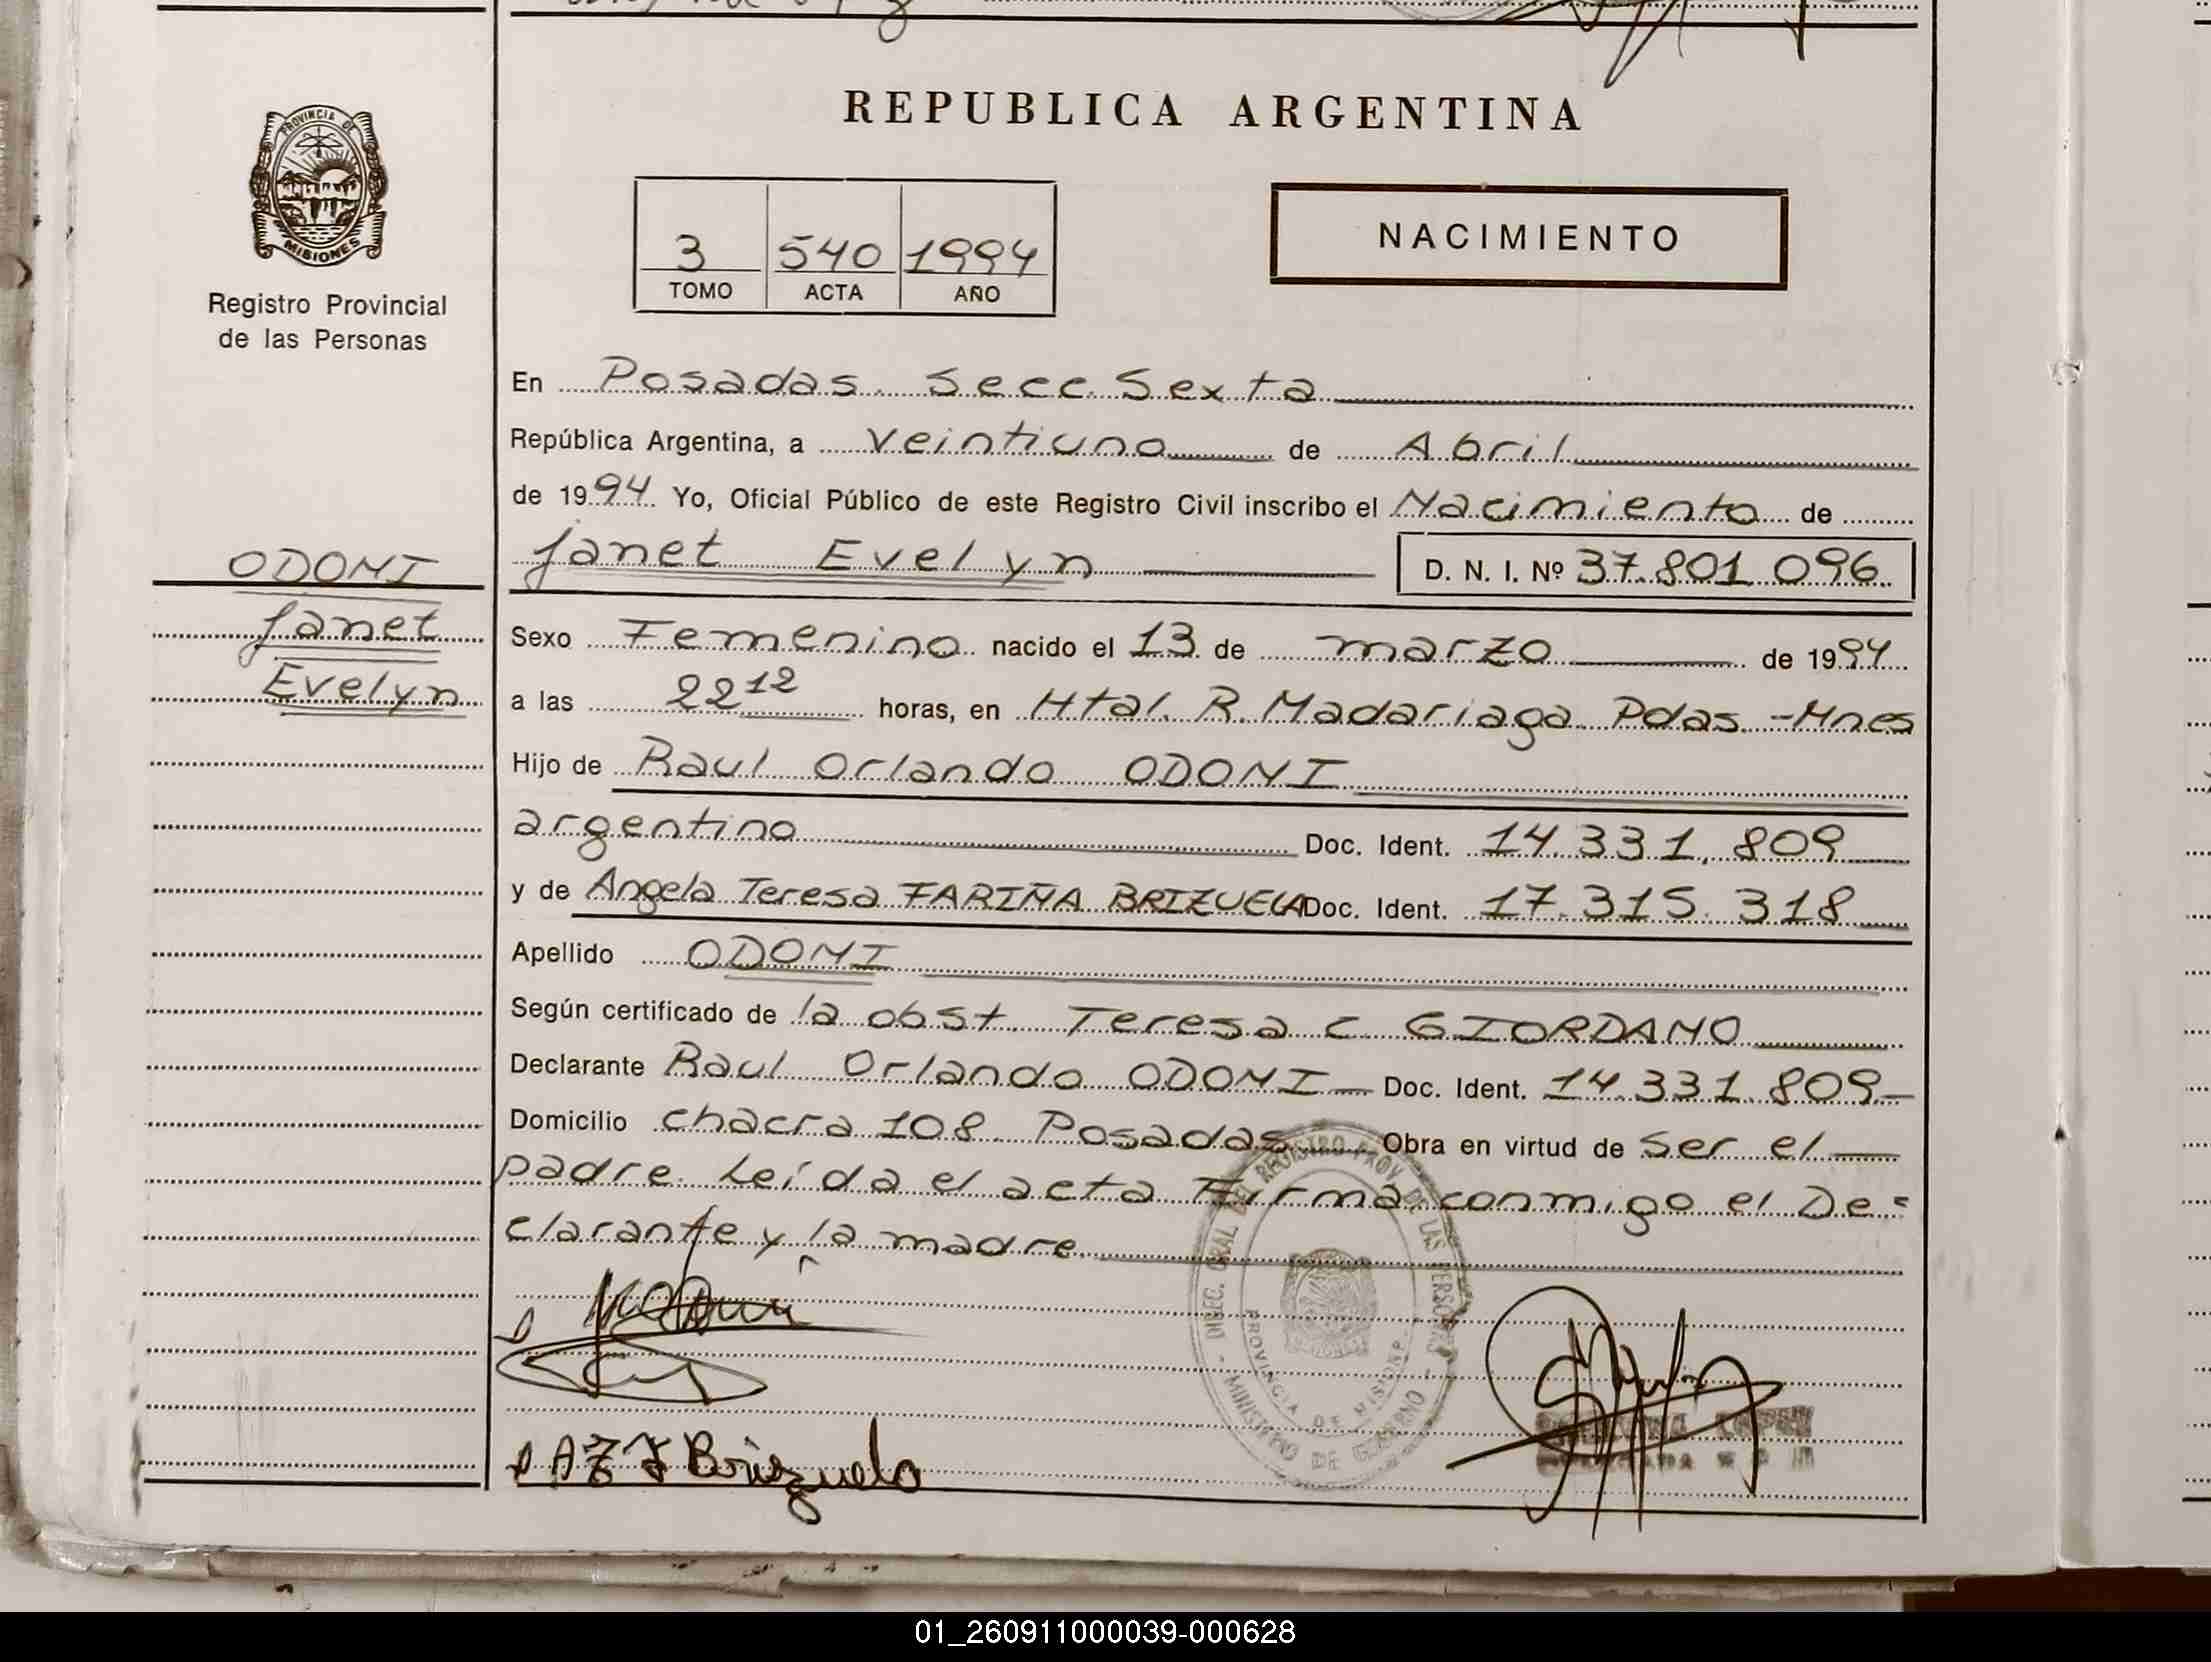 REPUBLICA ARGENTINA
PROVINCIA DE
MISIONES
Registro Provincial
de las Personas
3 540 1994
TOMO ACTA AÑO
NACIMIENTO
En Posadas. Secc. Sexta
República Argentina, a veintiuno de Abril
de 1994. Yo, Oficial Público de este Registro Civil inscribo el Nacimiento de
Janet Evelyn D. N. I. Nº 37.801.096
ODONI
Janet
Evelyn
Sexo Femenino nacido el 13 de marzo de 1994
a las 22 12 horas, en Htal. R. Madariaga Pdas. -Mnes
Hijo de Raul Orlando ODONI
argentino Doc. Ident. 14.331.809
y de Angela Teresa FARIÑA BRIZUELA Doc. Ident. 17.315.318
Apellido ODONI
Según certificado de la obst. Teresa C GIORDANO
Declarante Raul Orlando ODONI — Doc. Ident. 14.331.809-
Domicilio chacra 108. Posadas Obra en virtud de ser el —
padre. Leída el acta Firma conmigo el De=
clarante y la madre.
DIREC. GRAL DEL REGISTRO PROV. DE LAS PERSONAS
PROVINCIA DE MISIONES
MINISTERIO DE GOBIERNO
Brizuela
01_260911000039-000628